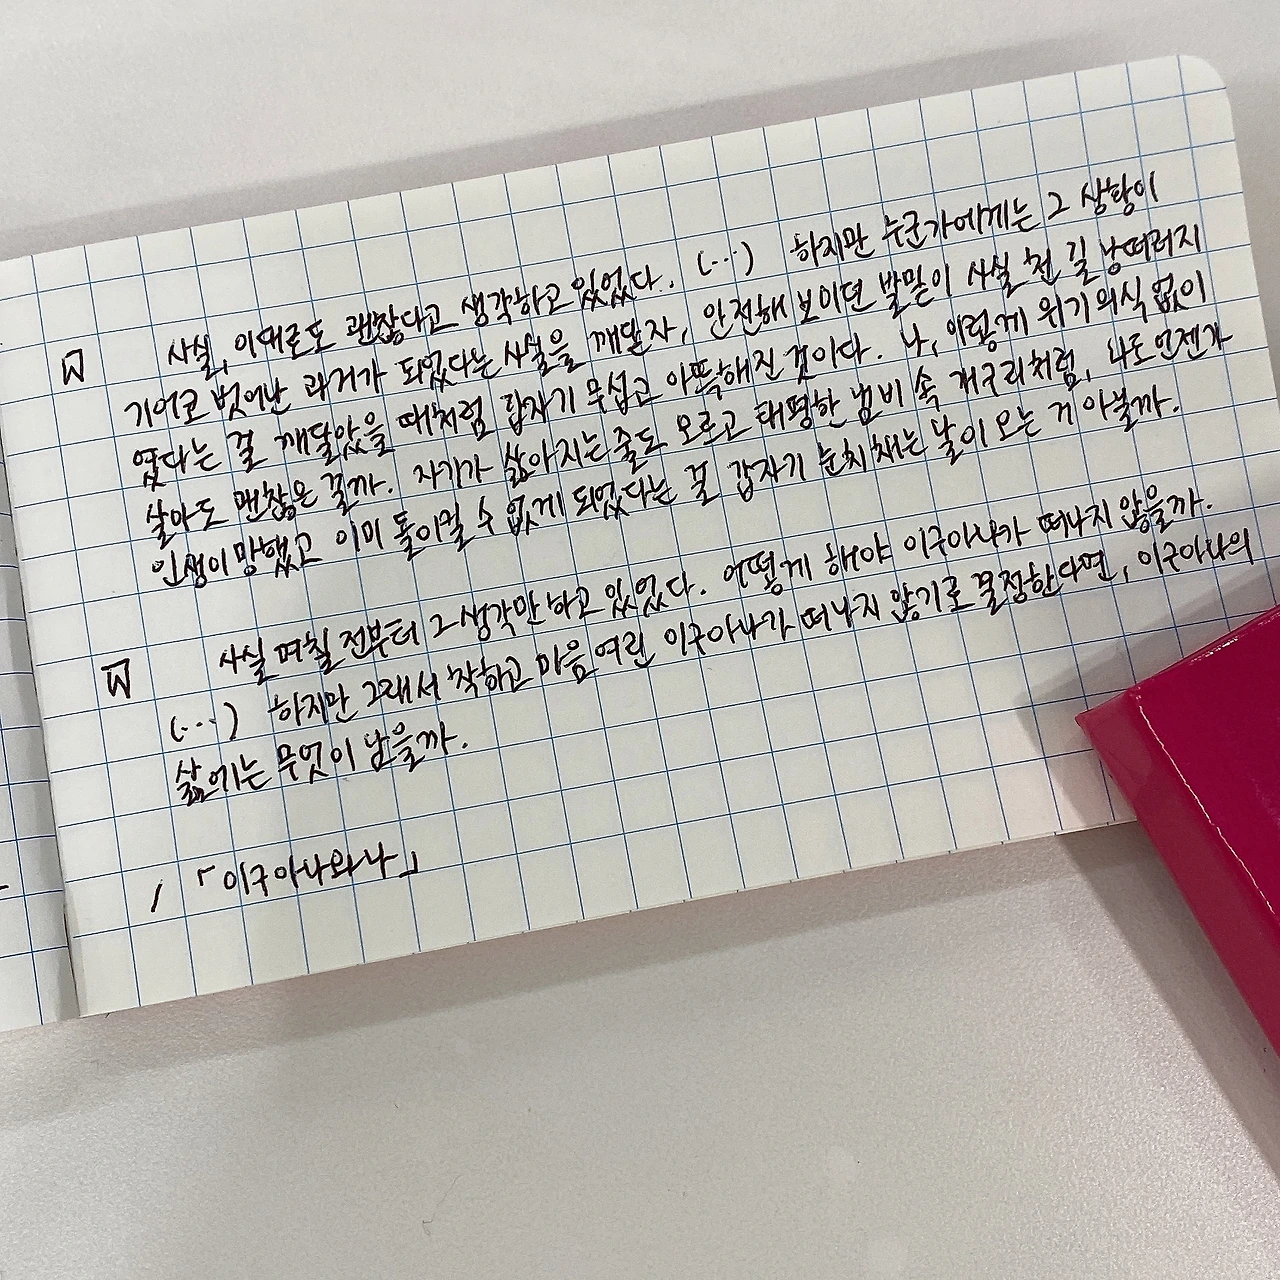 사실, 이대로도 괜찮다고 생각하고 있었다. (…) 하지만 누군가에게는 그 상황이
기어코 벗어난 과거가 되었다는 사실을 깨닫자, 안전해 보이던 발밑이 사실 천 길 낭떠러지
였다는 걸 깨달았을 때처럼 갑자기 무섭고 아뜩해진 것이다. 나, 이렇게 위기의식 없이
살아도 괜찮은 걸까. 자기가 삶아지는 줄도 모르고 태평한 냄비 속 개구리처럼, 나도 언젠가
인생이 망했고 이미 돌이킬 수 없게 되었다는 걸 갑자기 눈치채는 날이 오는 거 아닐까.
사실 며칠 전부터 그 생각만 하고 있었다. 어떻게 해야 이구아나가 떠나지 않을까.
(…) 하지만 그래서 착하고 마음 여린 이구아나가 떠나지 않기로 결정한다면, 이구아나의
삶에는 무엇이 남을까.
/ 「이구아나와 나」